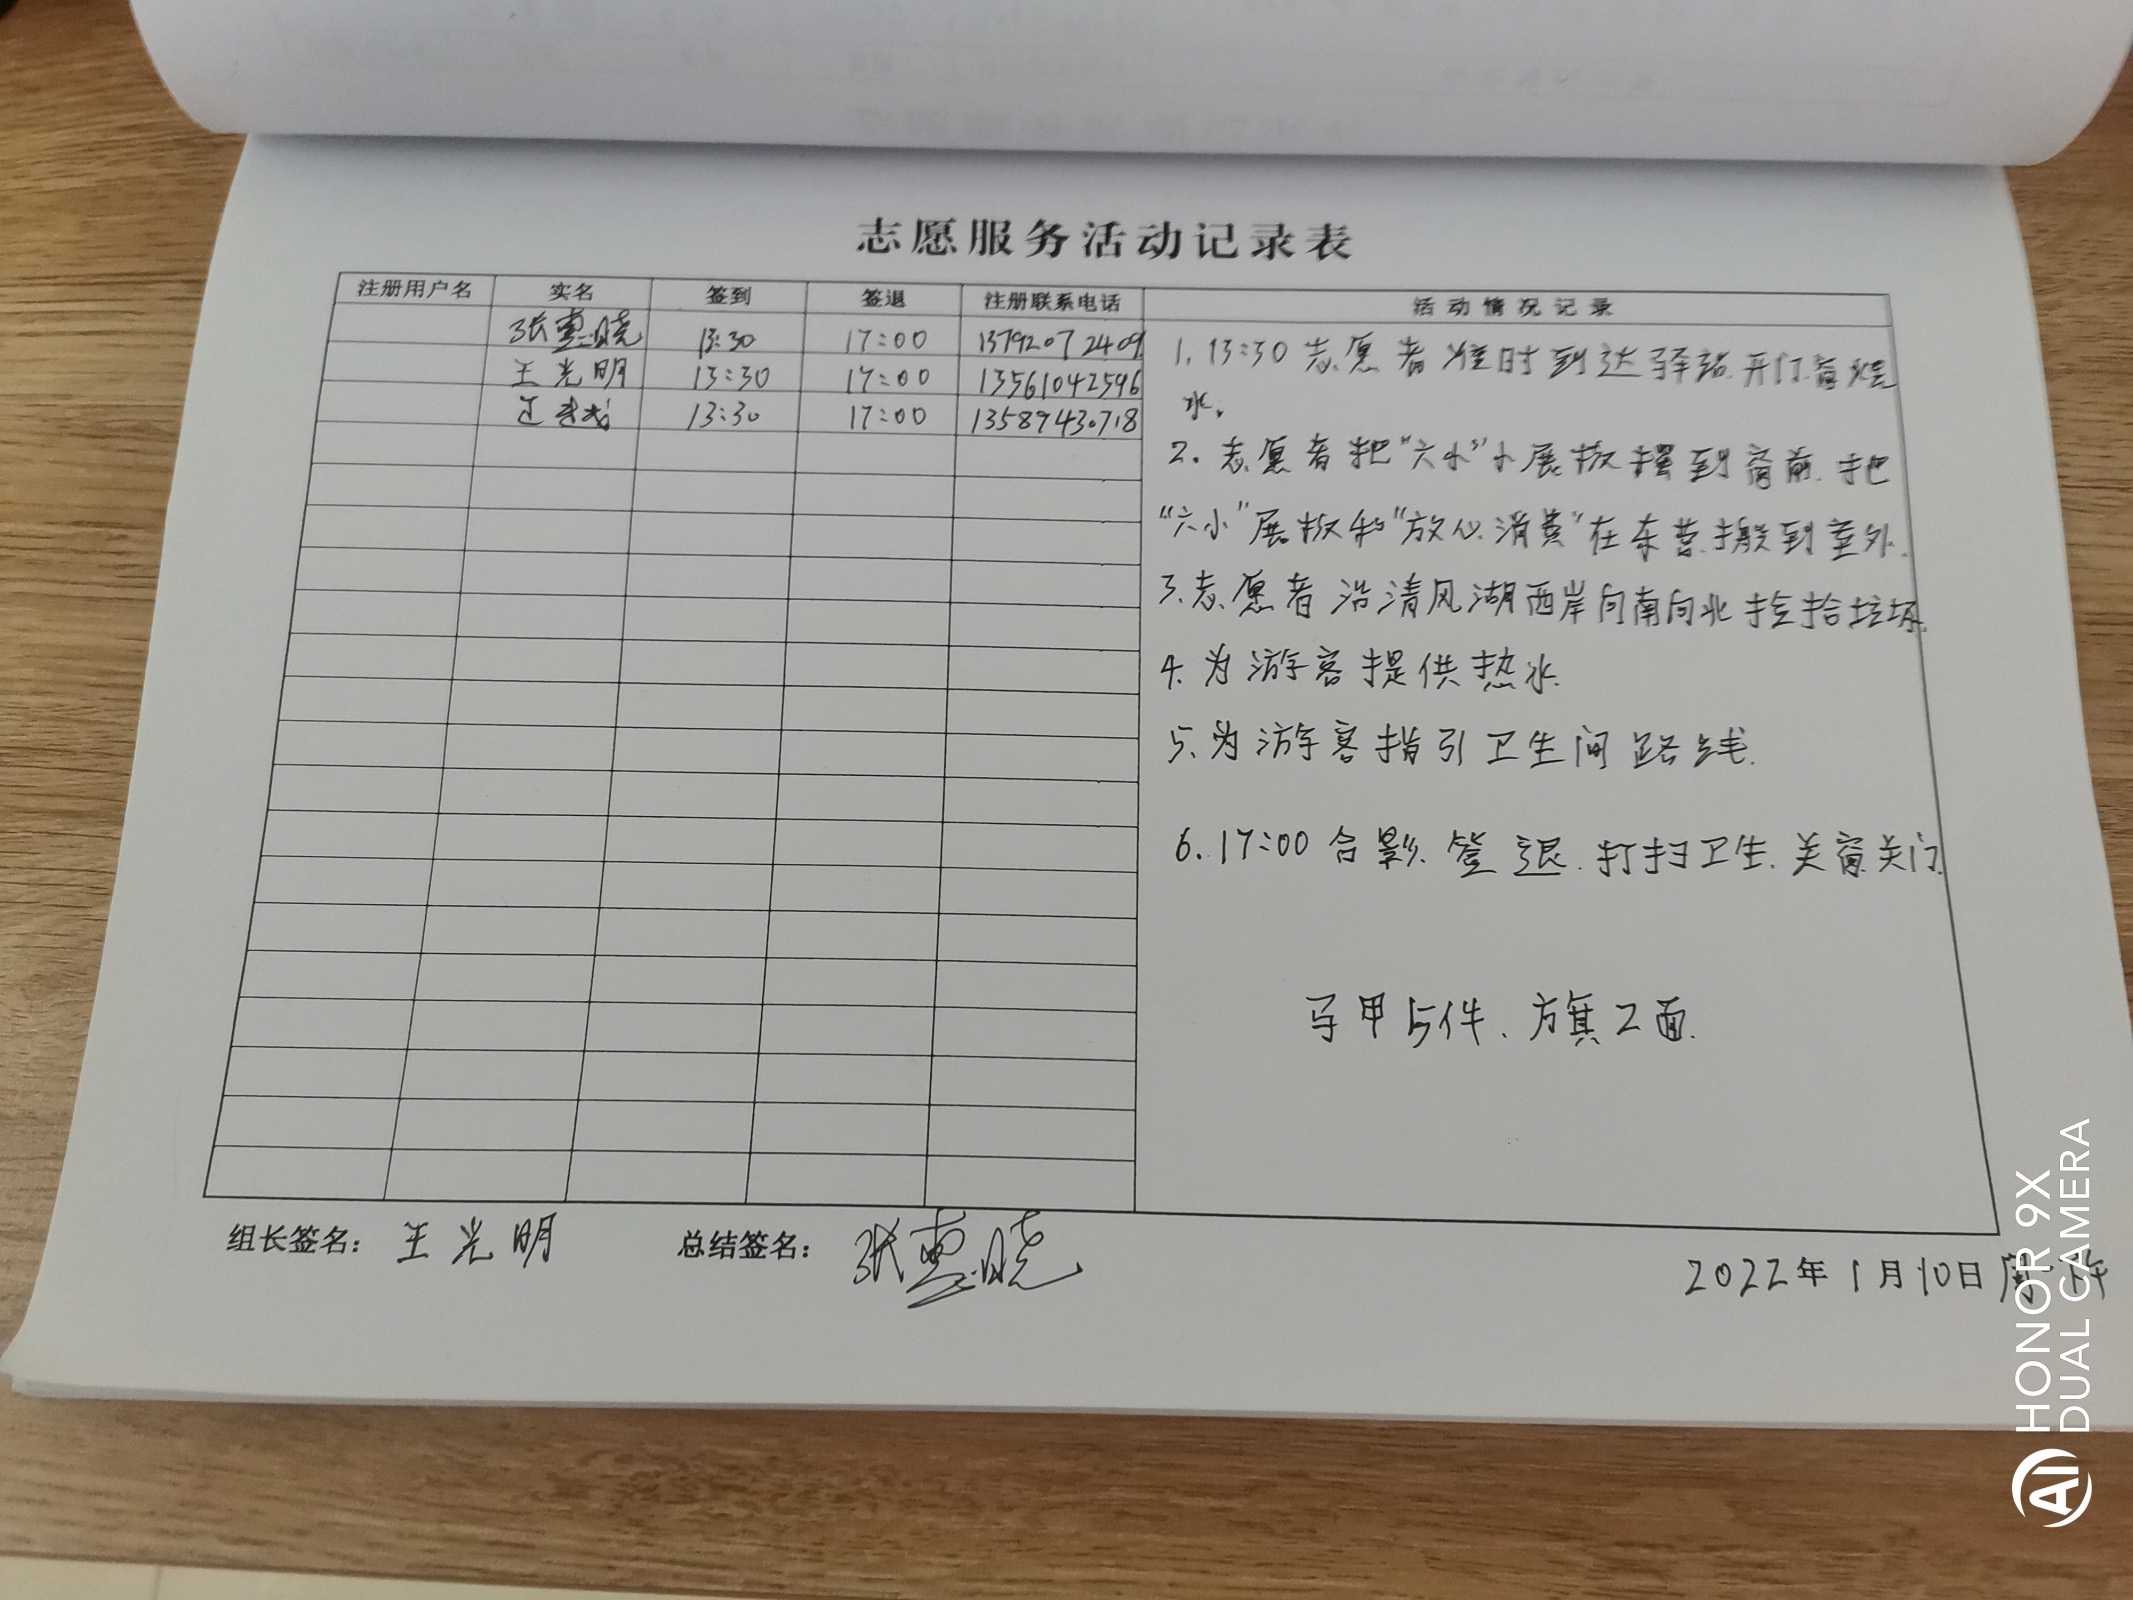 志愿服务活动记录表
注册用户名 实名 签到 签退 注册联系电话 活动情况记录
张惠晓 13:30 17:00 13792072409
王光明 13:30 17:00 13561042596
13:30 17:00 13589430718
1. 13:30 志愿者准时到达驿站.开门窗烧
水。
2. 志愿者把“六小”小展板摆到窗前.把
“六小”展板和“放心消费”在东营.搬到室外.
3.志愿者沿清风湖西岸向南向北捡拾垃圾.
4.为游客提供热水.
5.为游客指引卫生间路线.
6.17:00合影.签退.打扫卫生.关窗关门.
马甲5件、方旗2面.
组长签名: 王光明 总结签名: 张惠晓
2022年1月10日周一
HONOR 9X
DUAL CAMERA
AI